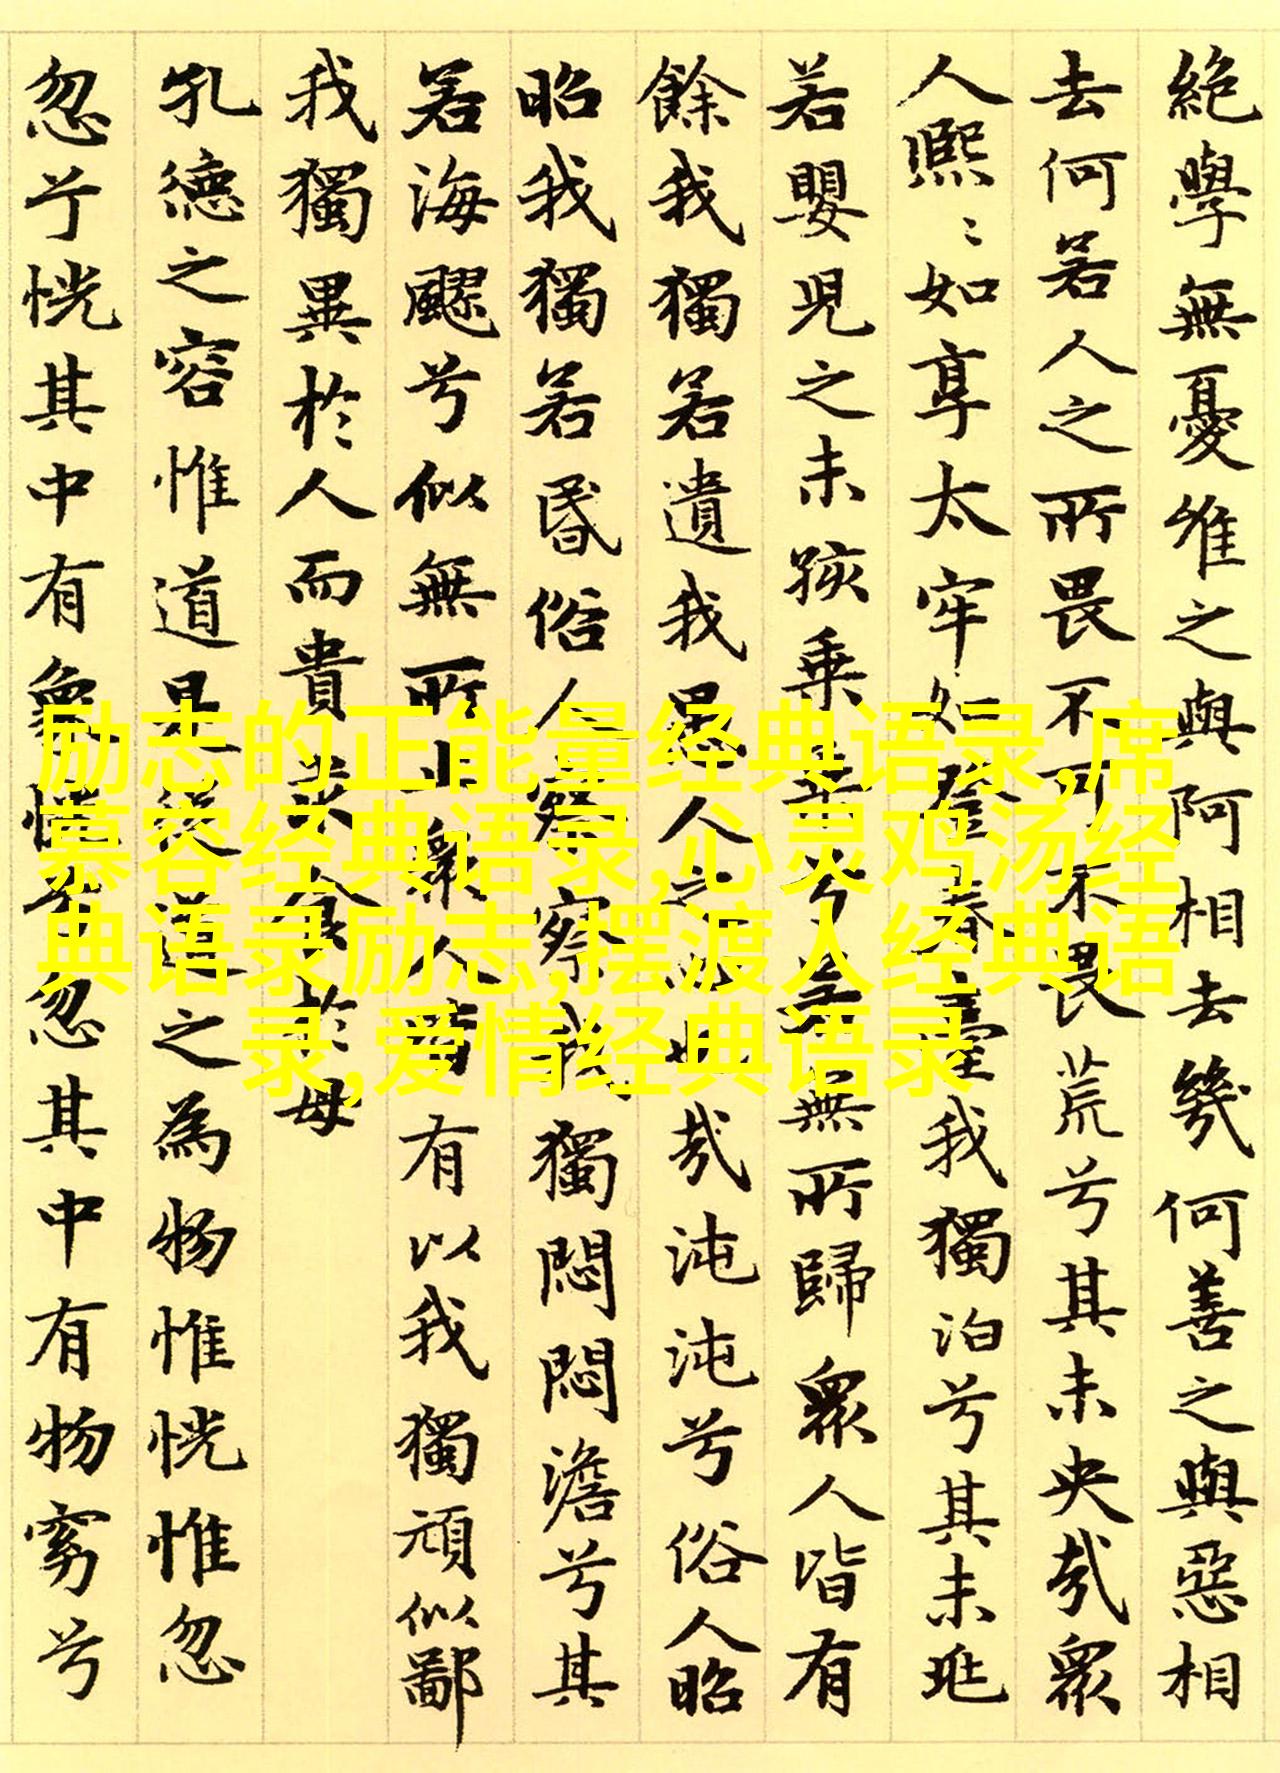 絕學無憂唯之與阿相去幾何善之與惡相
去何若人之所畏不可不畏荒兮其未央哉眾
人熙〻如享太牢如登春臺我獨泊兮其未兆
若嬰兒之未孩乗乗兮若無所歸眾人皆有
餘我獨若遺我愚人之心也哉沌沌兮俗人昭
昭我獨若昏俗人察察我獨悶悶澹兮其
若海飂兮似無所止眾人皆有以我獨頑似鄙
我獨異於人而貴求食於母
孔德之容惟道是從道之為物惟恍惟忽
忽兮恍其中有象恍兮忽其中有物窈兮
励志的正能量经典语录,席
慕容经典语录,心灵鸡汤经
典语录励志,摆渡人经典语
录,爱情经典语录